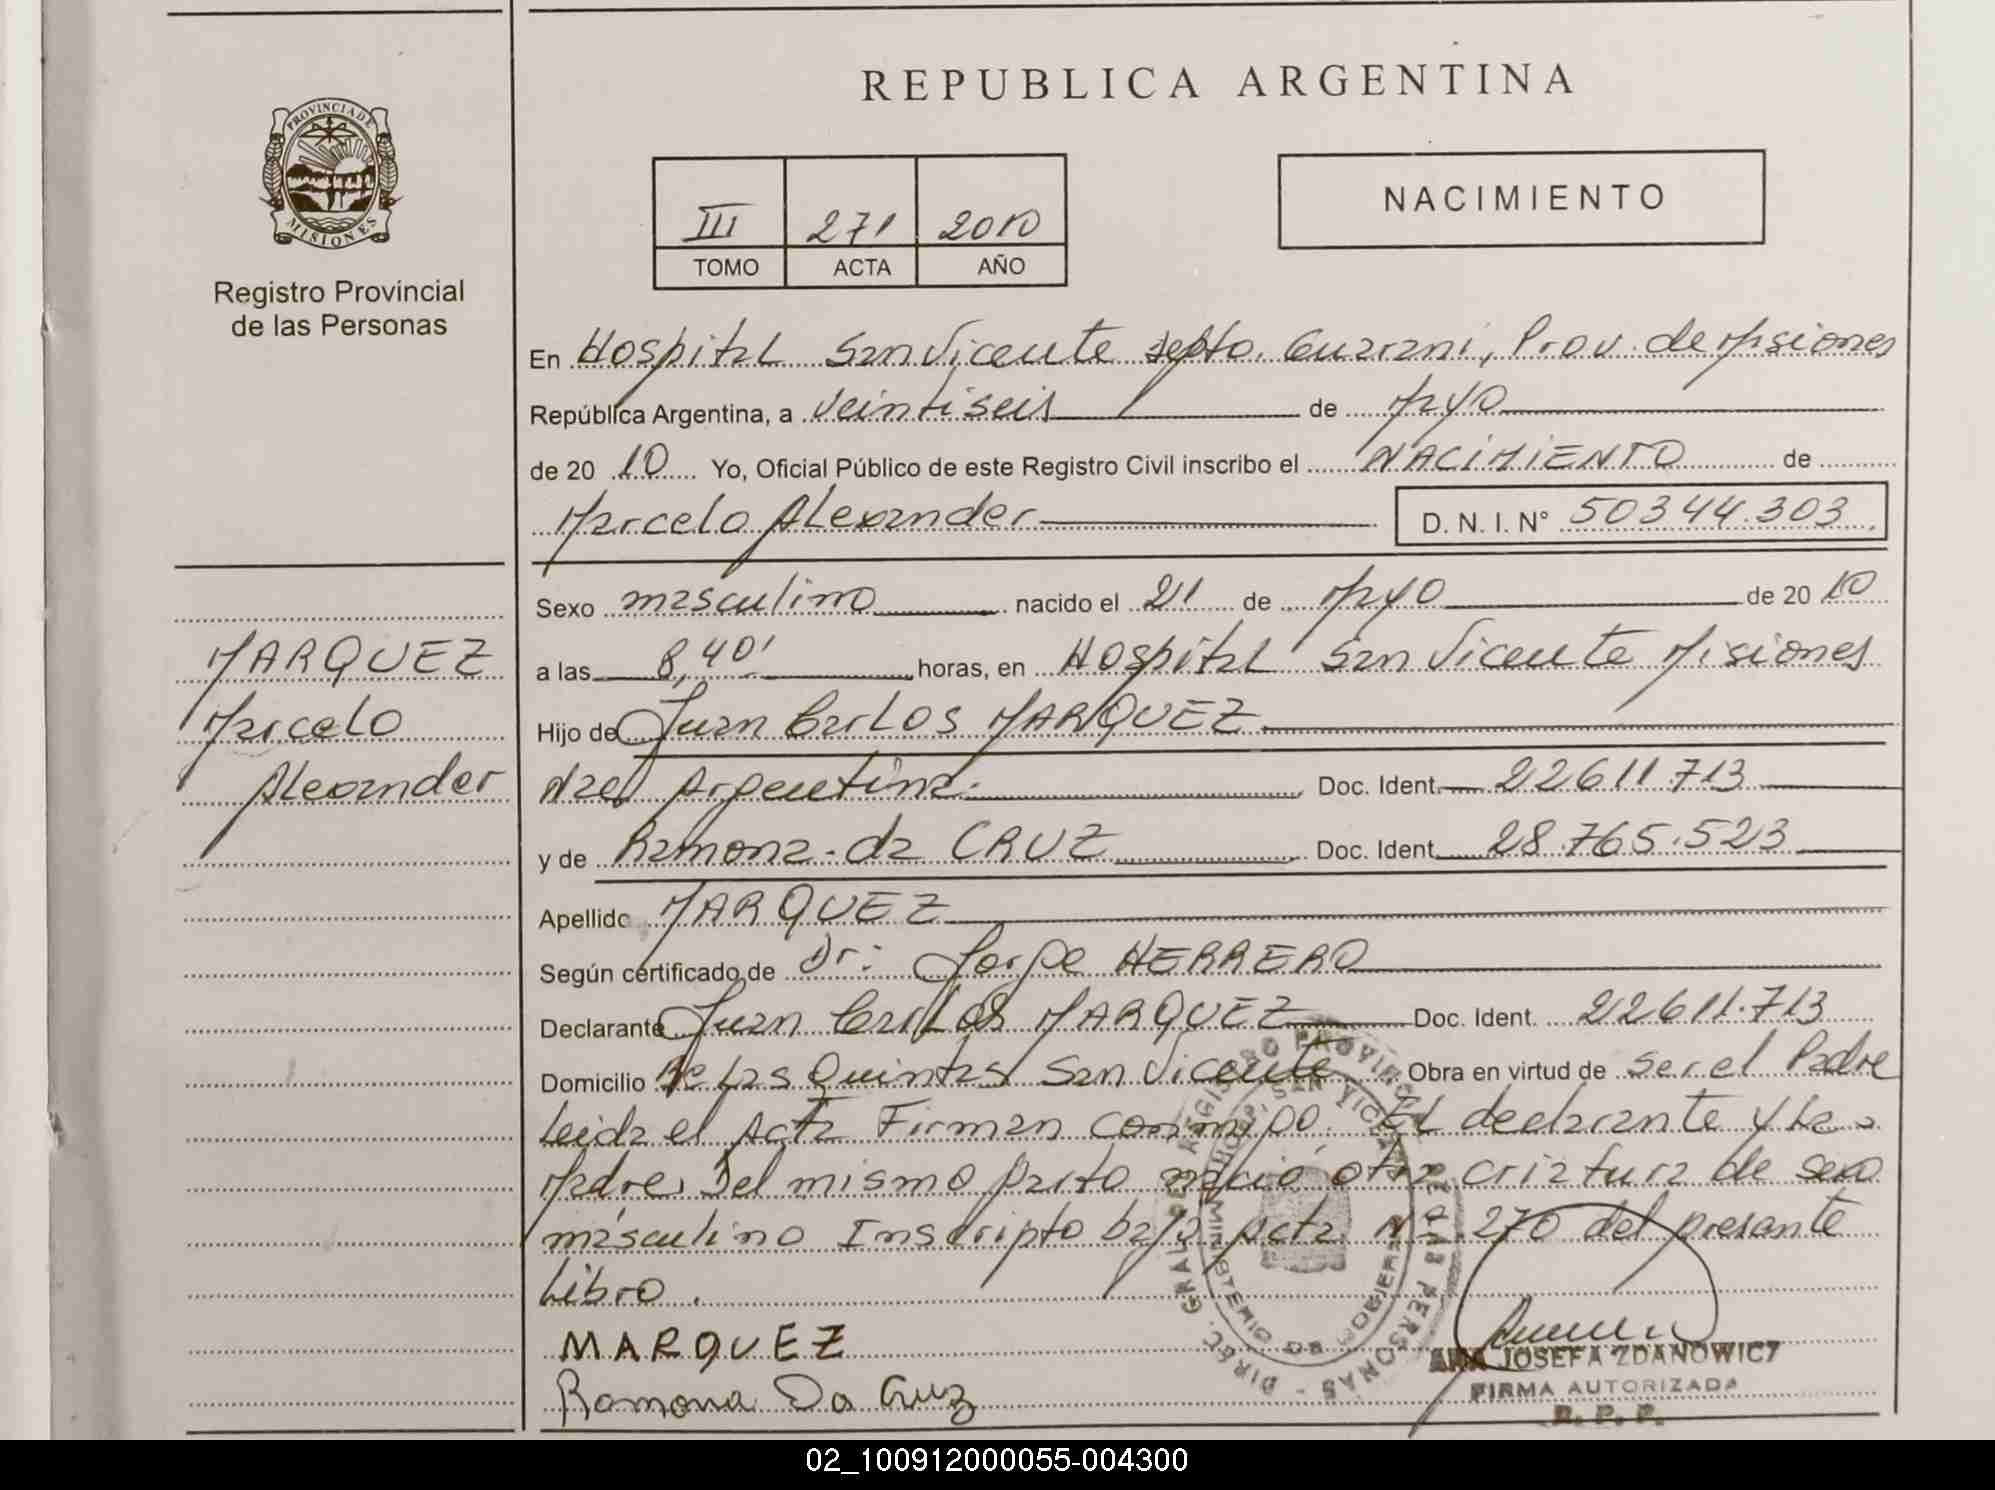 REPUBLICA ARGENTINA
PROVINCIA DE
MISIONES
Registro Provincial
de las Personas
III 271 2010
TOMO ACTA AÑO
NACIMIENTO
En Hospital San Vicente Depto. Guarani, Prov. de Misiones
República Argentina, a veintiseis de Mayo
de 20 10 Yo, Oficial Público de este Registro Civil inscribo el NACIMIENTO de
Marcelo Alexander D. N. I. N° 50344.303
Sexo masculino nacido el 21 de Mayo de 20 10
a las 8,40' horas, en Hospital San Vicente Misiones
Hijo de Juan Carlos MARQUEZ
Nac. Argentina. Doc. Ident. 22611.713
y de Ramona da CRUZ Doc. Ident. 28.765.523
Apellido MARQUEZ
Según certificado de Dr: Jorge HERRERO
Declarante Juan Carlos MARQUEZ Doc. Ident. 22611.713
Domicilio Las Quintas San Vicente Obra en virtud de ser el Padre
Leida el Acta Firman conmigo. El declarante y La
Madre. Del mismo parto nació otra criatura de sexo
masculino Inscripto bajo Acta Nº 270 del presente
Libro.
MARQUEZ
Ramona Da Cruz
MARQUEZ
Marcelo
Alexander
ANA JOSEFA ZDANOWICZ
FIRMA AUTORIZADA
R. P. P.
02_100912000055-004300